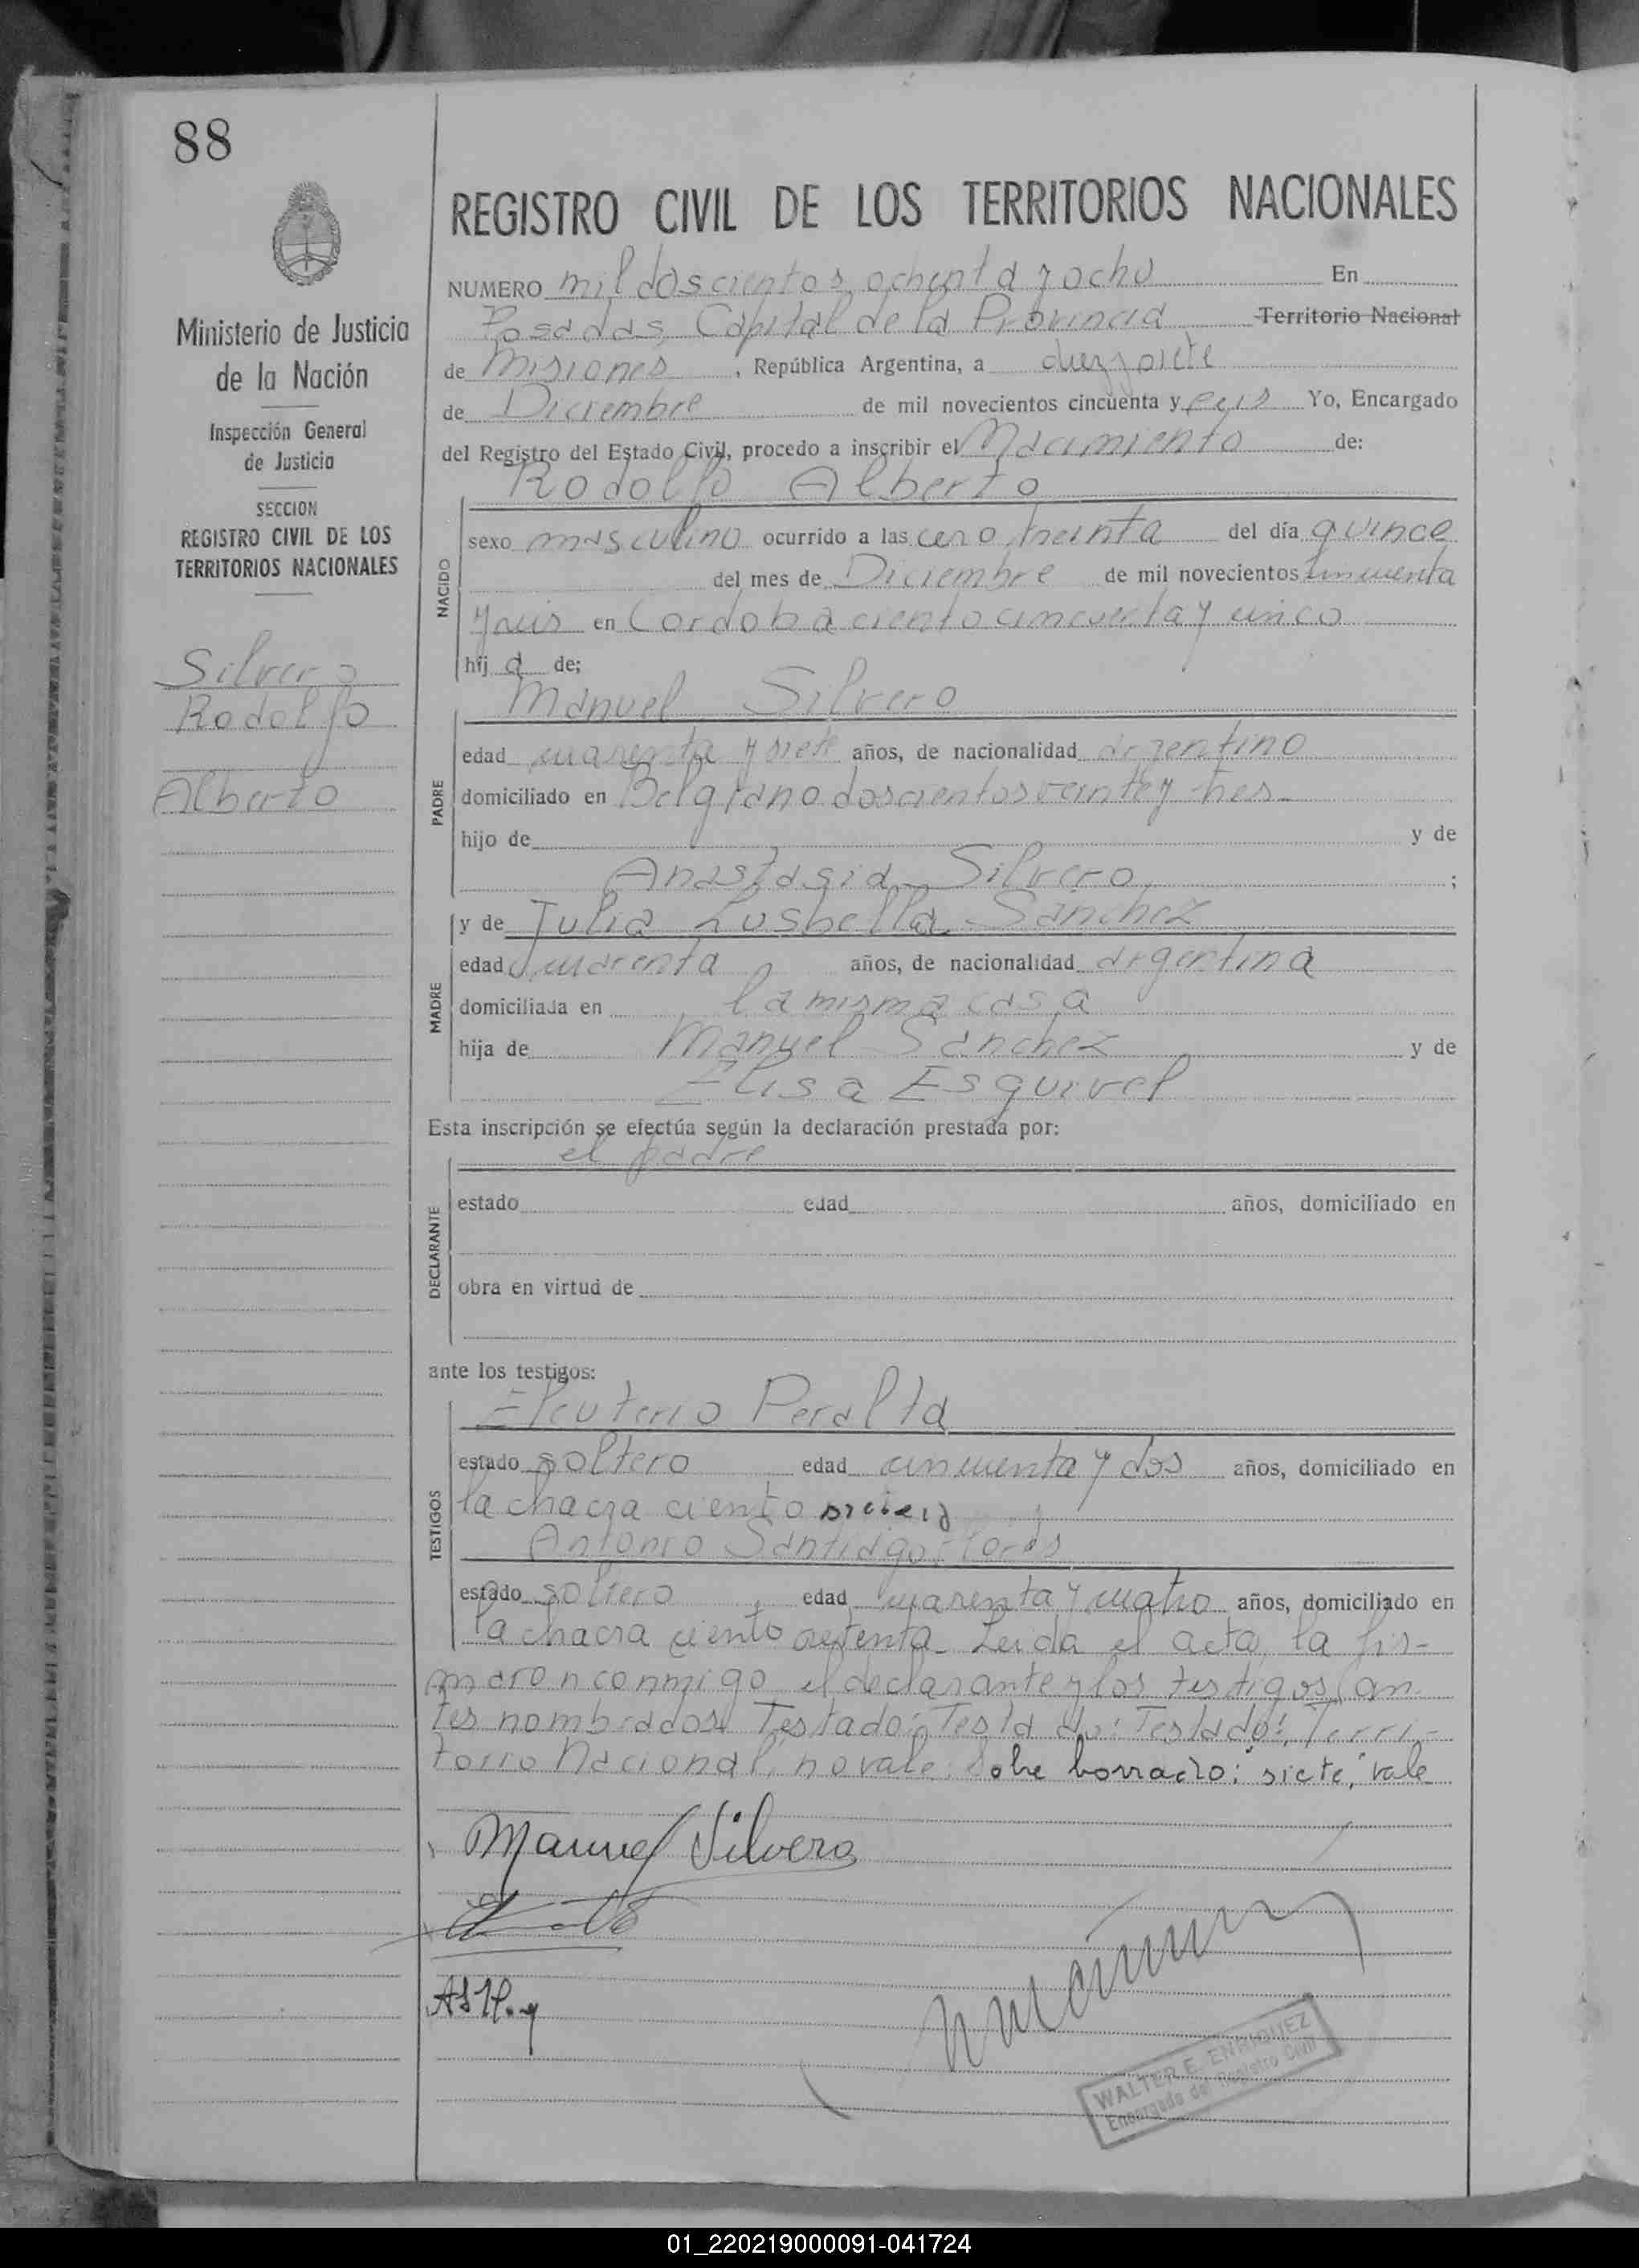 88
REGISTRO CIVIL DE LOS TERRITORIOS NACIONALES
Ministerio de Justicia
de la Nación
Inspección General
de Justicia
SECCION
REGISTRO CIVIL DE LOS
TERRITORIOS NACIONALES
Silvero
Rodolfo
Alberto
NUMERO mil doscientos ochenta y ocho En
Posadas, Capital de la Provincia Territorio Nacional
de Misiones, República Argentina, a diez y siete
de Diciembre de mil novecientos cincuenta y seis Yo, Encargado
del Registro del Estado Civil, procedo a inscribir el Nacimiento de:
Rodolfo Alberto
NACIDO
sexo masculino ocurrido a las cero treinta del día quince
del mes de Diciembre de mil novecientos cincuenta
y seis en Cordoba ciento cincuenta y cinco
hij o de;
Manuel Silvero
PADRE
edad cuarenta y siete años, de nacionalidad argentino
domiciliado en Belgrano doscientos veinte y tres
hijo de y de
Anastasia Silvero ;
y de Julia Lusbella Sanchez
MADRE
edad cuarenta años, de nacionalidad argentina
domiciliada en la misma casa
hija de Manuel Sanchez y de
Elisa Esquivel
Esta inscripción se efectúa según la declaración prestada por:
el padre
DECLARANTE
estado edad años, domiciliado en
obra en virtud de
ante los testigos:
Eleuterio Peralta
TESTIGOS
estado soltero edad cincuenta y dos años, domiciliado en
la chacra ciento
Antonio Santiago Flores
estado soltero edad cuarenta y cuatro años, domiciliado en
la chacra ciento setenta. Leida el acta, la fir-
maron conmigo el declarante y los testigos an-
tes nombrados. Testado: Testado: Testado: Terri-
torio Nacional, no vale. Sobre borrado: siete, vale
Manuel Silvero
WALTER E. ENRIQUEZ
Encargado del Registro Civil
01_220219000091-041724